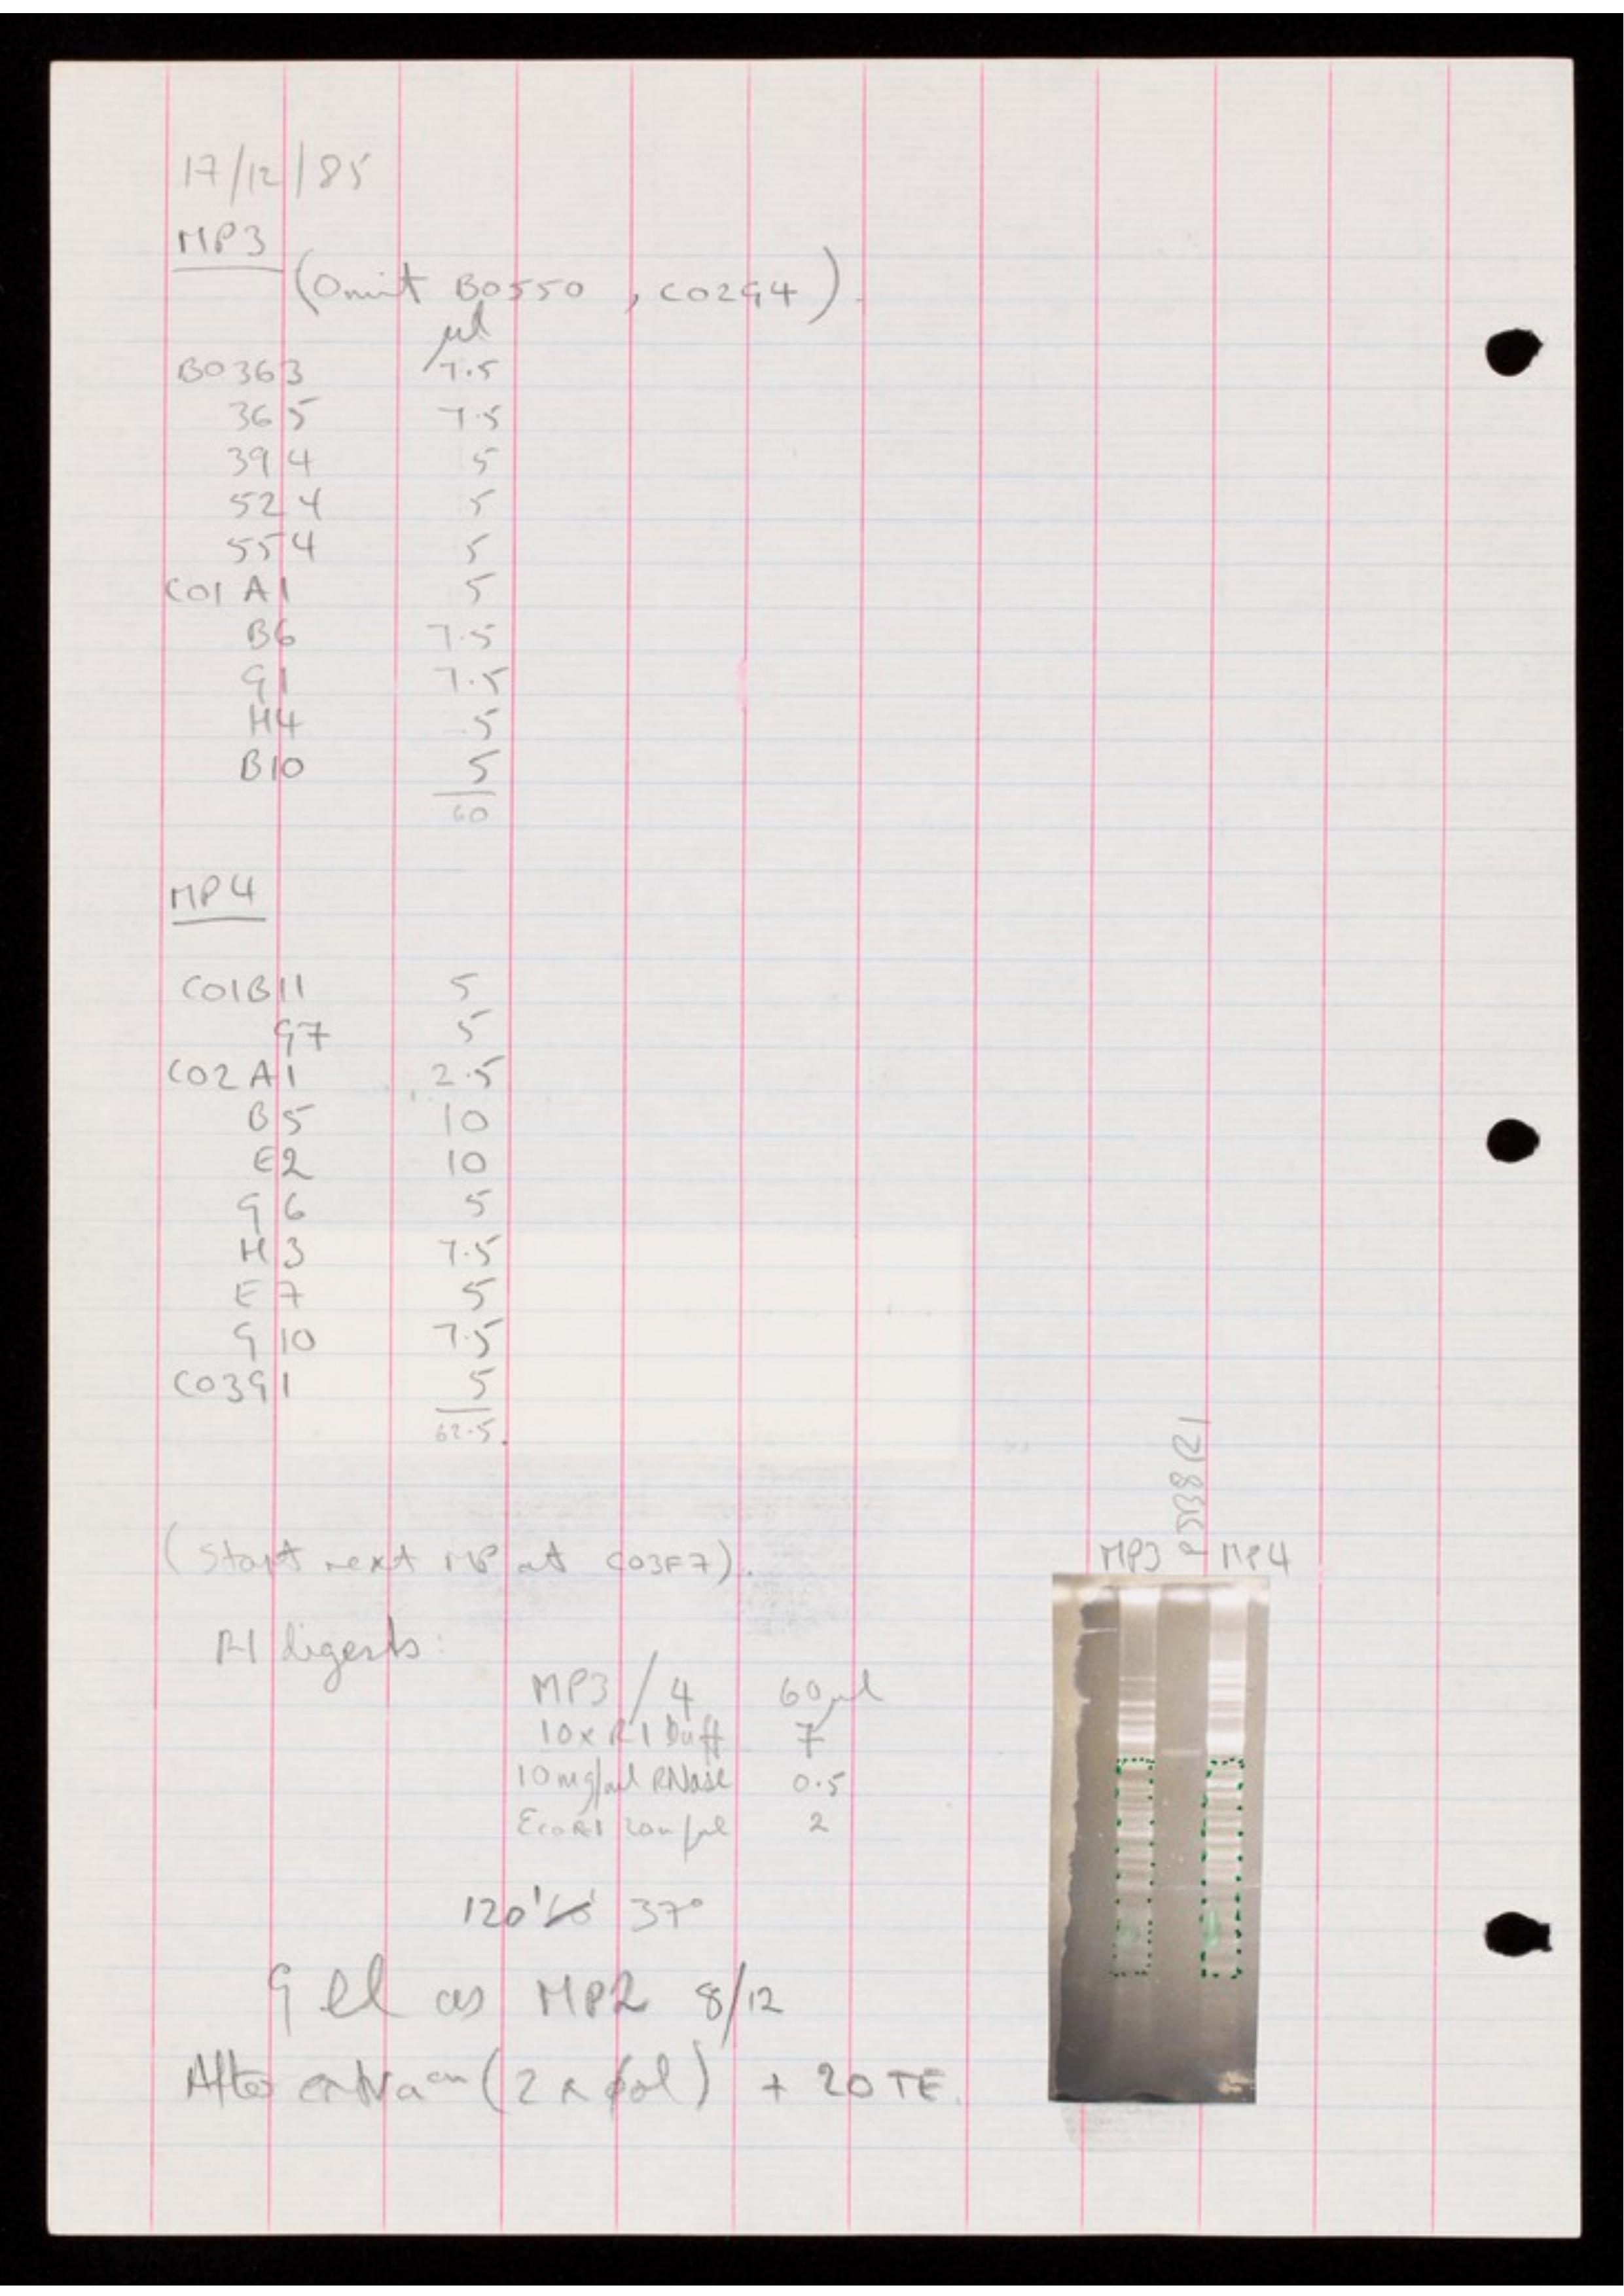 17/12/85
MP3
(Omit B0550 , C02G4).
µl
B0363 7.5
365 7.5
394 5
524 5
554 5
C01 A1 5
B6 7.5
G1 7.5
H4 5
B10 5
60
MP4
C01B11 5
G7 5
C02 A1 2.5
B5 10
E2 10
G6 5
H3 7.5
E7 5
G10 7.5
C03G1 5
62.5
(Start next MP at C03F7).
MP3 MP4
RI digests:
MP3/4 60µl
10x RI Buff 7
10mg/ml RNase 0.5
EcoRI 20u/µl 2
120' 37°
Gel as MP2 8/12
After (2 x ϕol) + 20 TE.